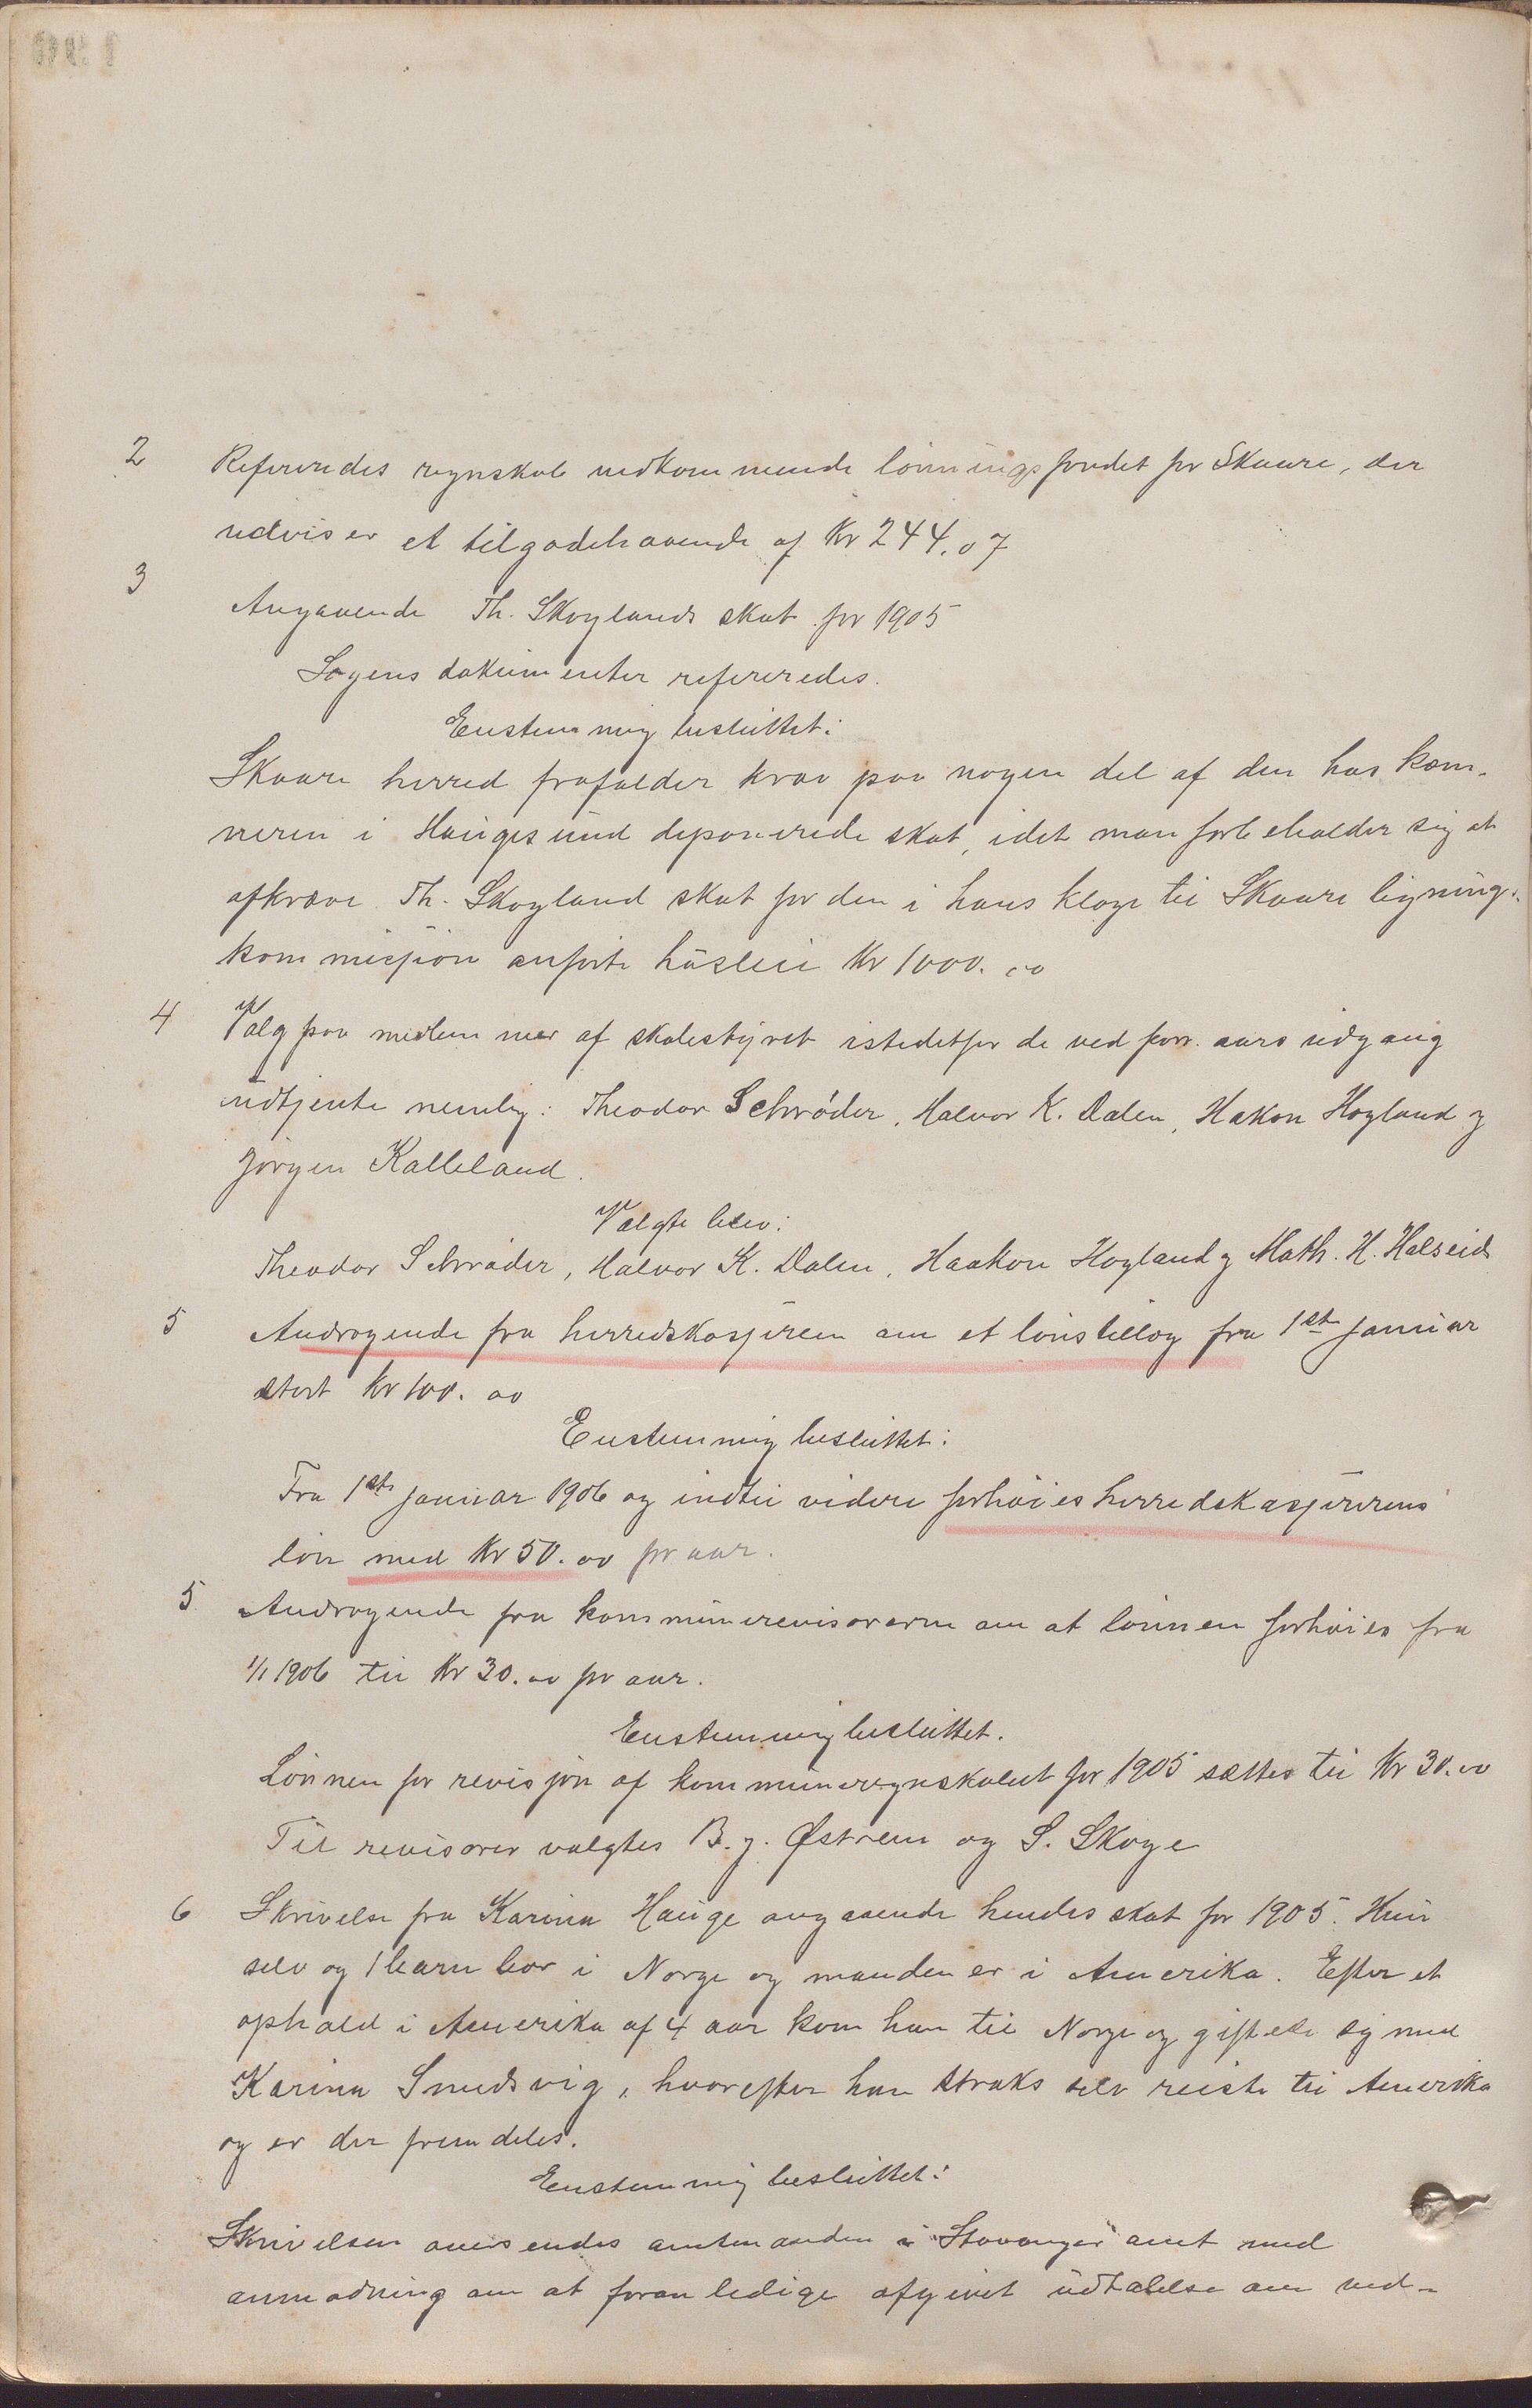 2 Refereredes regnskab vedkommende lønningsfondet for Skaare, der
udviser et tilgodehavende af Kr 244.07
3 Angaaende Th. Skoglands skat for 1905
Sagens dokumenter refereredes.
Enstemmig besluttet:
Skaare herred frafalder krav paa nogen del af den hos kæm-
neren i Haugesund deponerede skat, idet man forbeholder sig at
afkræve Th. Skogland skat for den i hans klage til Skaare lignings-
kommisjion anførte husleie Kr 1000.00
4 Valg paa medlemmer af skolestyret istedetfor de ved forr. aars udgang
udtjente nemlig: Theodor Schrøder, Halvor K. Dalen, Hakon Høyland og
Jørgen Kalleland.
Valgte blev:
Theodor Schrøder, Halvor K. Dalen, Haakon Høyland og Math. H. Halseid
5 Andragende fra herredskasjeren om et lønstillæg fra 1ste januar
stort Kr 100.00
Enstemmig besluttet:
Fra 1ste januar 1906 og indtil videre forhøies herredskasjererens
løn med Kr 50.00 pr aar.
5 Andragende fra kommunerevisorerne om at lønnen forhøies fra
1/1 1906 til Kr 30.00 pr aar.
Enstemmig besluttet.
Lønnen for revisjon af kommuneregnskabet for 1905 sættes til Kr 30.00
Til revisorer valgtes B. J. Østrem og S. Skoge
6 Skrivelse fra Karina Hauge angaaende hendes skat for 1905. Hun
selv og 1 barn bor i Norge og manden er i Amerika. Efter et
ophold i Amerika af 4 aar kom han til Norge og giftede sig med
Karina Smedsvig, hvorefter han straks selv reiste til Amerika
og er der fremdeles.
Enstemmig besluttet:
Skrivelsen oversendes amtmanden i Stavanger amt med
anmodning om at foranledige afgivet udtalelse om ved-